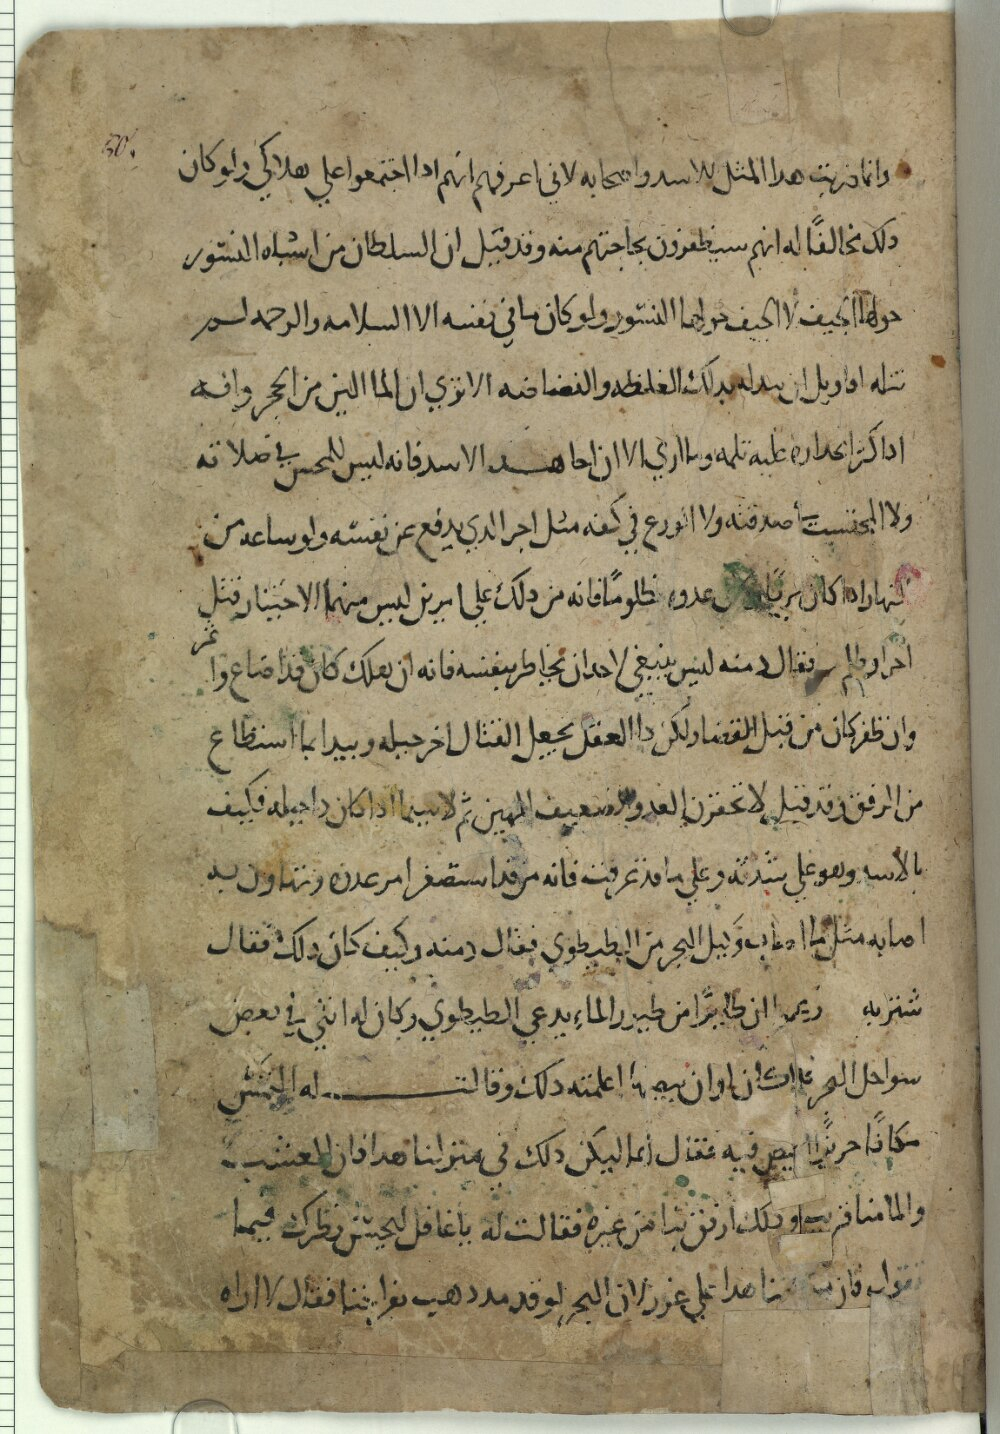 50.
وانما ضربت هدا المثل للاسد واصحابه لاني اعرفهم انهم ادا اجتمعوا علي هلاكي ولو كان
دلك مخالفًا له انهم سيظفرون بحاجتهم منه وقد قيل ان السلطان من اشباه النسور
حولها الجيف لا الجيف حولها النسور ولو كان ما في نفسه الا السلامه والرحمه لم
تتله اقاويل ان يبدله بدلك الغلظه والفضاضه الا تري ان الما الين من الحجر وانه
ادا كثر انحداره عليه ثلمه وما اري الا ان اجاهد الاسد فانه ليس للمحسن في صلاته
ولا المحتسب في صدقته ولا الورع في كفه مثل اجر الدي يدفع عن نفسه ولو ساعه من
نهار ادا كان بريًا وكان عدوه ظلومًا فانه من دلك علي امرين ليس منهما الا خيار قتل
احراو ظلم فقال دمنه ليس ينبغي لاحد ان يخاطر بنفسه فانه ان هلك كان قد اضاع وا
وان ظفر كان من قبل القضا ولكن دا العقل يجعل القتال اخر حيله ويبدا بما استطاع
من الرفق وقد قيل لا تحقرن العدو الضعيف المهين ثم لا سيما ادا كان دا حيله فكيف
بالاسد وهو علي شدته وعلي ما قد عرفت فانه من قد استصغر امر عدوه وتهاون به
اصابه مثل ما اصاب وكيل البحر من الطيطوي فقال دمنه وكيف كان دلك فقال
شنزبه زعموا ان طايرًا من طيور الما يدعي الطيطوي وكان له انثي في بعض
سواحل البحر فلما كان اوان بيضها اعلمته دلك وقالت له التمس
مكانًا حريزًا ابيض فيه فقال لها ليكن دلك في منزلنا هدا فان العشب
والما منا قريب ودلك ارفق بنا من غيره فقالت له يا غافل ليحسن نظرك فيما
تقول فان مكاننا هدا علي غرر لان البحر لو قد مد دهب بفراخنا فقال لا اراه